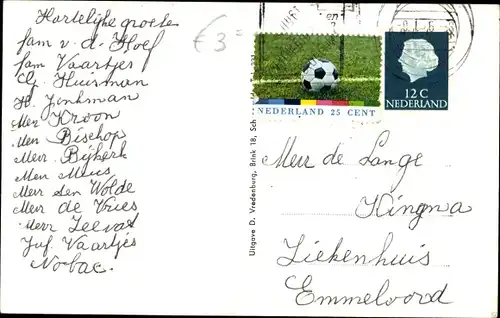 Hartelijke groeten
fam v. d. Hoef
fam Vaartjes
Cj. Huisman
H. Jonkman
Mevr Kroon
Mevr Bisschop
Mevr. Bijkerk
Mevr Muis
Mevr ten Wolde
Mevr de Vries
Mevr Zeevat
Juf. Vaartjes
Nobac.
€ 3 =
NEDERLAND 25 CENT
12 C
NEDERLAND
Uitgave D. Vredenburg, Brink 18, Sch
Mevr de Lange
Kingma
Ziekenhuis
Emmeloord